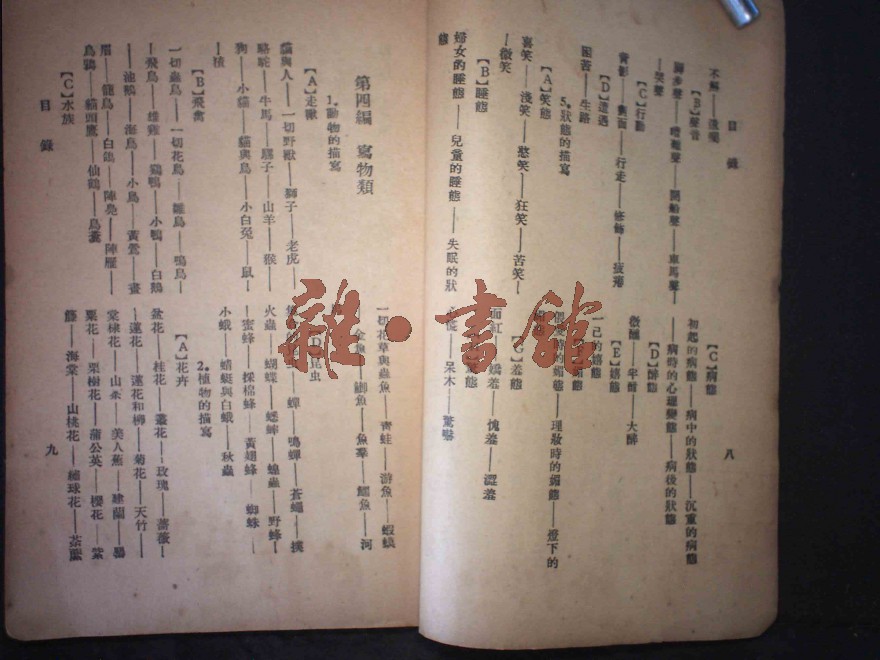 目錄
【B】聲音
——笑聲
【C】行動
【D】遭遇
困苦——生路
5.狀態的描寫
【A】笑態
喜笑——淺笑——憨笑——狂笑——苦笑—
—微笑
【B】睡態
婦女的睡態——兒童的睡態——失眠的狀
態
八
【C】病態
初起的病態——病中的狀態——沉重的病態
——病時的心理變態——病後的狀態
【D】醉態
微醺——半醉——大醉
【E】
一己的
理妝時的 燈下的
【G】羞態
面紅——嬌羞——愧羞——澀羞
心慌——呆木——驚嚇
第四編 寫物類
1.動物的描寫
【A】走獸
貓與人——一切野獸——獅子——老虎—
駱駝——牛馬——騾子——山羊——猴—
狗——小貓——貓與鳥——小白兔——鼠—
—豬
【B】飛禽
一切蟲鳥——一切花鳥——雛鳥——鳴鳥—
—飛鳥——雄雞——鷄鴨——小鴨——白鵝
—池鵝——海鳥——小鳥——黃鶯——畫
眉——籠鳥——白鴿——陣鳧——陣雁—
烏鴉——貓頭鷹——仙鶴——鳥糞
【C】水族
目錄
一切花草與蟲魚——青蛙——游魚——蝦蟆
金魚——鯽魚——魚羣——鱷魚——河
【D】昆虫
蟬——鳴蟬——蒼蠅——撲
火蟲——蝴蝶——蟋蟀——蝗蟲——野蜂—
—蜜蜂——採棉蜂——黃翅蜂——蜘蛛—
小蛾——蜻蜓與白蛾——秋蟲
2.植物的描寫
【A】花卉
盆花——桂花——叢花——玫瑰——薔薇—
—蓮花——蓮花和柳——菊花——天竹—
棠棣花——山茶——美人蕉——建蘭——曇
花——栗樹花——蒲公英——櫻花——紫
藤——海棠——山桃花——繡球花——荼蘼
九
雜·書館